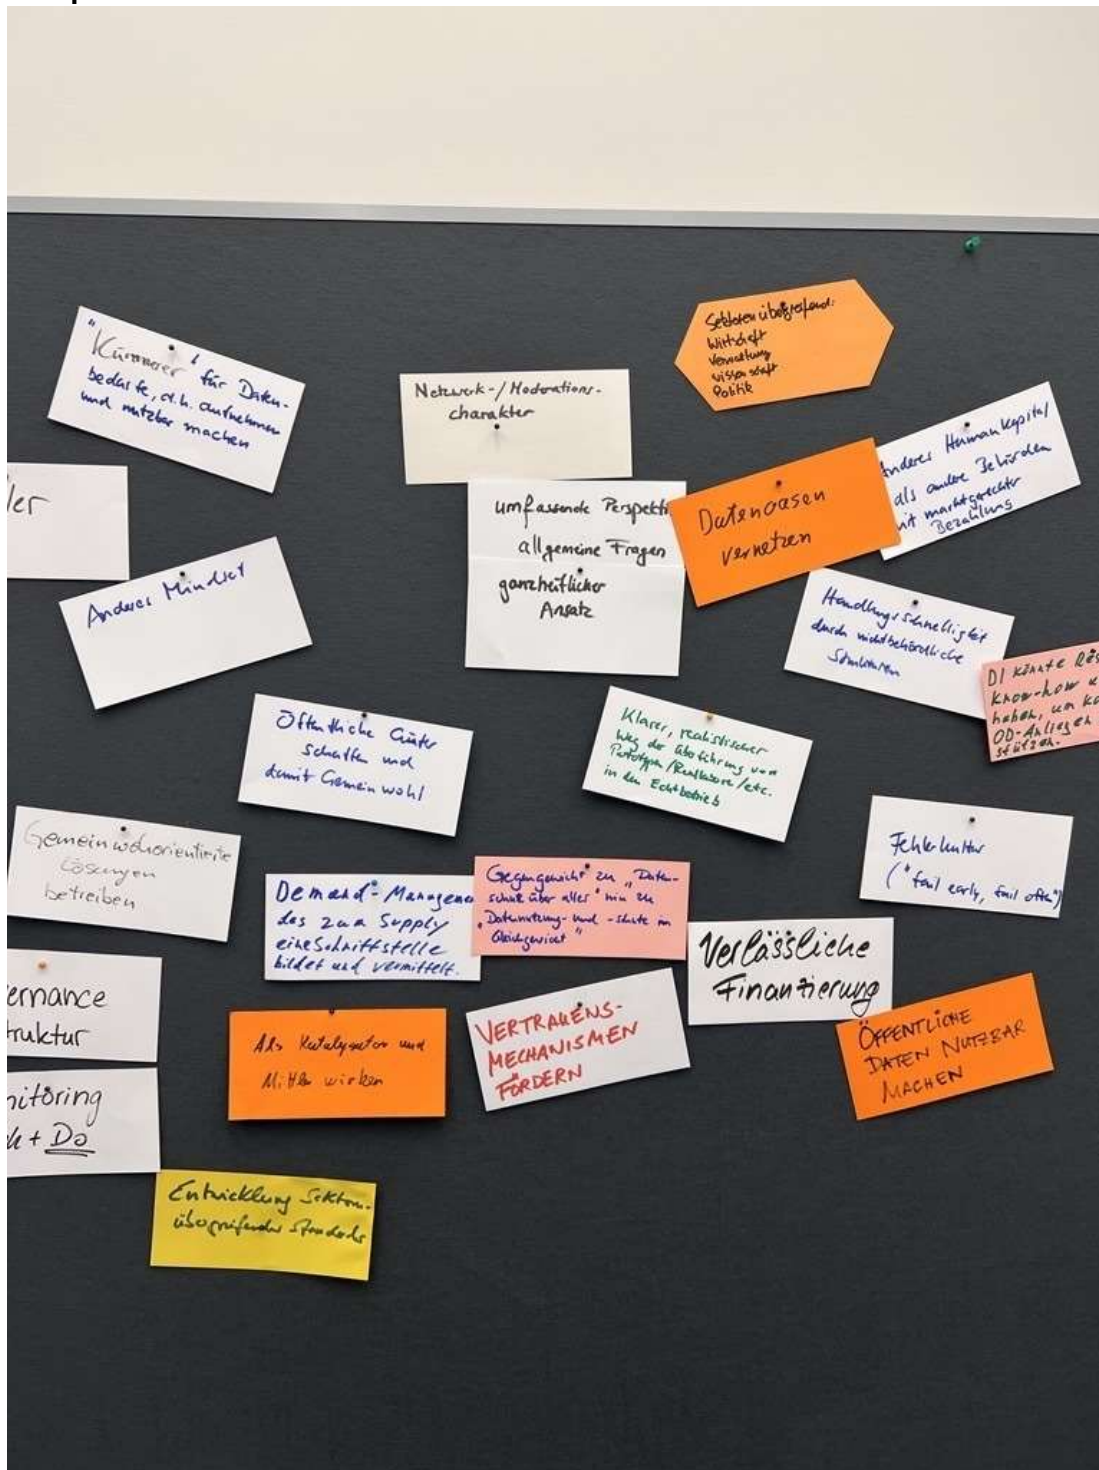 "Kümmerer" für Daten-
bedarfe, d.h. aufnehmen
und nutzbar machen
Netzwerk-/Moderations-
charakter
Sektorenübergreifend:
Wirtschaft
Verwaltung
Wissenschaft
Politik
ler
umfassende Perspekti
allgemeine Fragen
ganzheitlicher
Ansatz
Datenoasen
vernetzen
Anderes Humankapital
als andere Behörden
mit marktgerechter
Bezahlung
Anderes Mindset
Handlungsschnelligkeit
durch nichtbehördliche
Strukturen
DI könnte
Know-how
haben, um
OD-Anliegen
stützen.
Öffentliche Güter
schaffen und
damit Gemeinwohl
Klarer, realistischer
Weg der Überführung von
Prototypen/Reallabore/etc.
in den Echtbetrieb
Gemeinwohlorientierte
Lösungen
betreiben
Demand-Managemen
das zum Supply
eine Schnittstelle
bildet und vermittelt.
Gegengewicht zu "Daten-
schutz über alles" hin zu
"Datennutzung- und -schutz im
Gleichgewicht"
Fehlerkultur
("fail early, fail often")
Verlässliche
Finanzierung
ernance
truktur
Als Katalysator und
Mittler wirken
VERTRAUENS-
MECHANISMEN
FÖRDERN
ÖFFENTLICHE
DATEN NUTZBAR
MACHEN
nitoring
k + Do
Entwicklung Sektoren-
übergreifender Standards